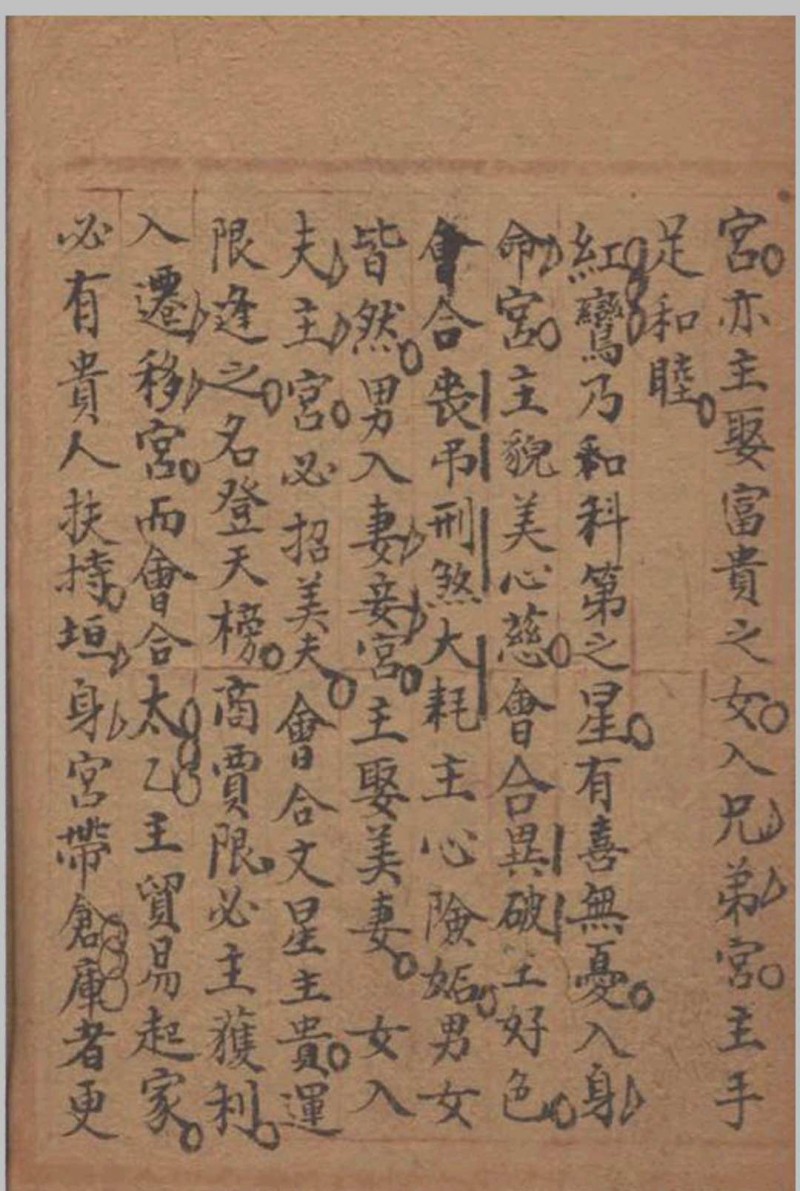 宮亦主娶富貴之女入兄弟宮主手
足和睦
紅鸞乃和科第之星有喜無憂入身
命宮主貌美心慈會合異破主好色
會合喪吊刑煞大耗主心險妬男女
皆然男入妻妾宮主娶美妻 女入
夫主宮必招美夫會合文星主貴運
限逢之名登天榜商賈限必主獲利
入遷移宮而會合太乙主貿易起家
必有貴人扶持垣身宮帶倉庫者更